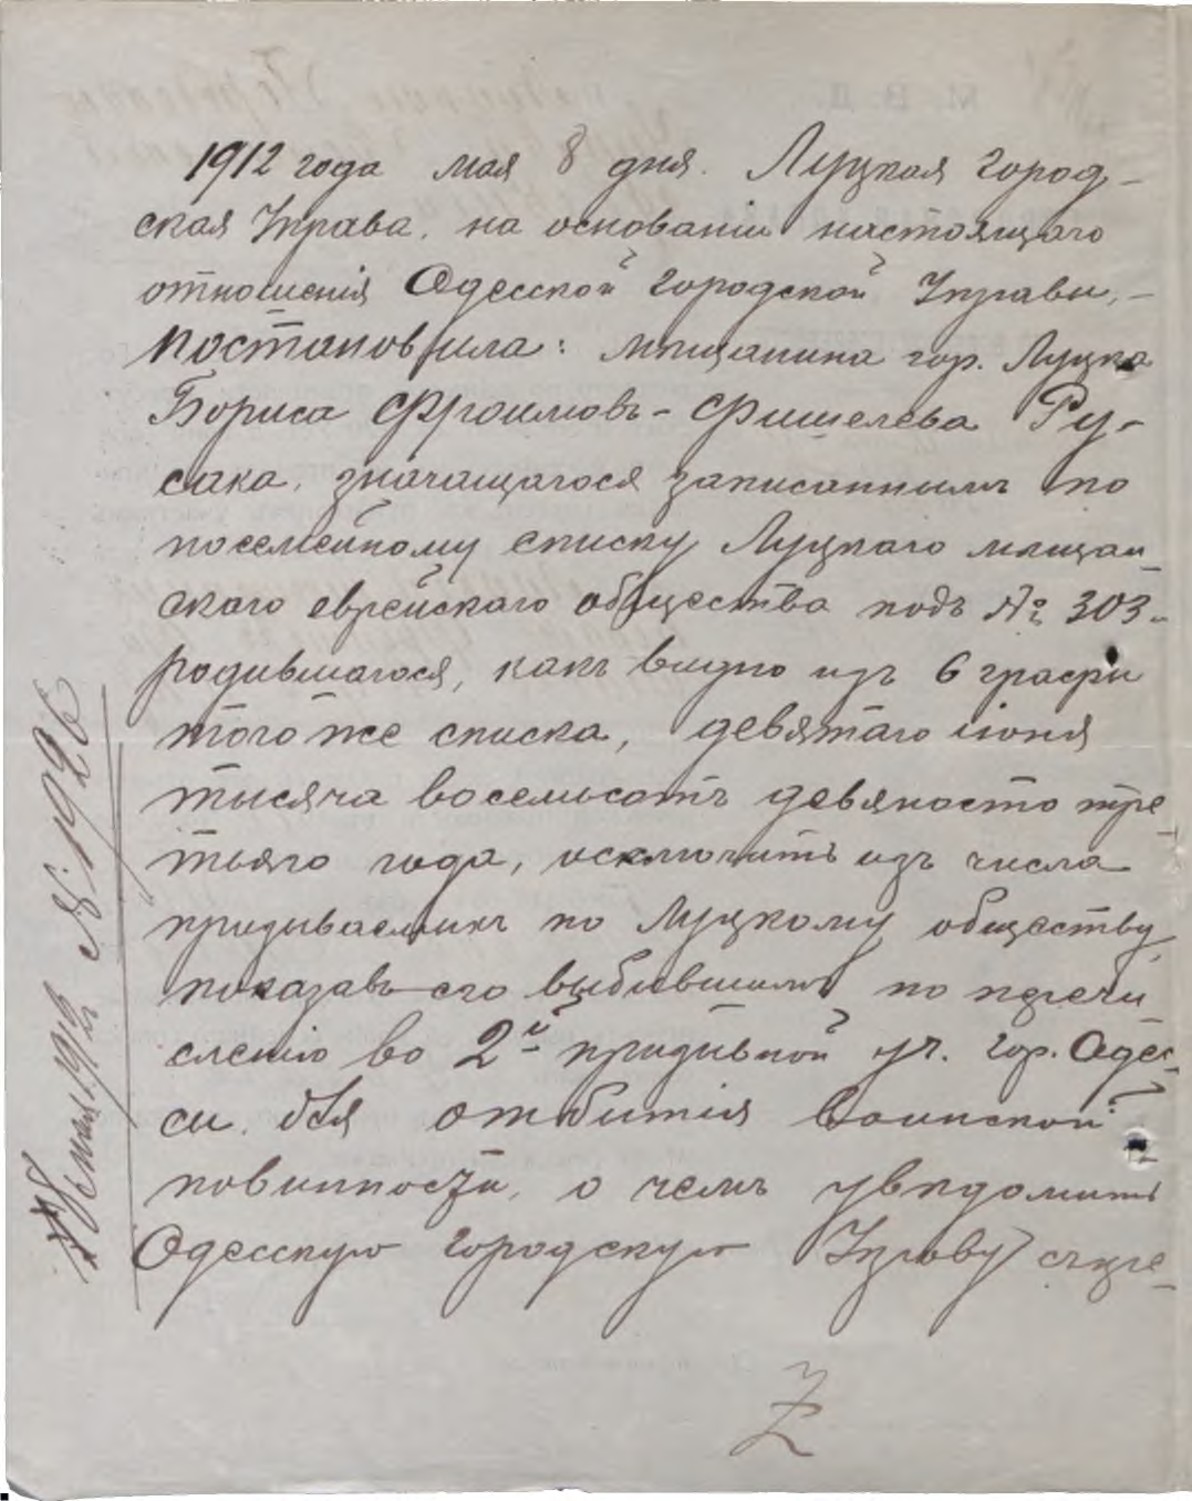 1912 года мая 8 дня. Луцкая Город-
ская Управа, на основаніи настоящаго
отношенія Одесской Городской Управы, -
постановила: мѣщанина гор. Луцка
Бориса Фроимовъ-Фишелева Ру-
сака, значащагося записаннымъ по
посемейному списку Луцкаго мѣщан-
скаго еврейскаго общества подъ № 303-
родившагося, какъ видно изъ 6 графы
того же списка, девятаго іюня
тысяча восемьсотъ девяносто тре-
тьяго года, исключить изъ числа
призываемыхъ по Луцкому обществу,
показавъ его выбывшимъ по перечи-
сленію во 2й призывной уч. гор. Одес-
сы, для отбытія воинской
повинности, о чемъ увѣдомить
Одесскую Городскую Управу
8 мая 1912 № 1926